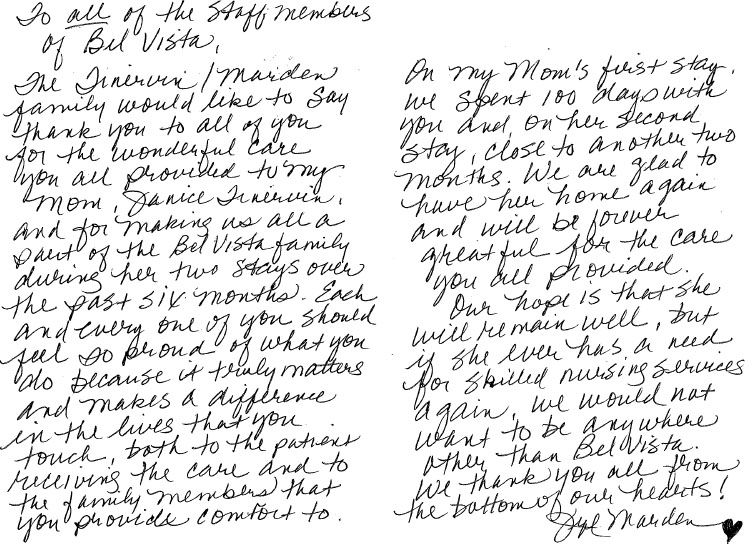 To all of the Staff members
of Bel Vista,
The Tinervin / Marden
family would like to say
thank you to all of you
for the wonderful care
you all provided to my
Mom, Janice Tinervin,
and for making us all a
part of the Bel Vista family
during her two stays over
the past six months. Each
and every one of you should
feel so proud of what you
do because it truly matters
and makes a difference
in the lives that you
touch, both to the patient
receiving the care and to
the family members that
you provide comfort to.
On my Mom's first stay,
we spent 100 days with
you and, on her second
stay, close to another two
months. We are glad to
have her home again
and will be forever
greatful for the care
you all provided.
Our hope is that she
will remain well, but
if she ever has a need
for skilled nursing services
again, we would not
want to be anywhere
other than Bel Vista.
We thank you all from
the bottom of our hearts!
Marden